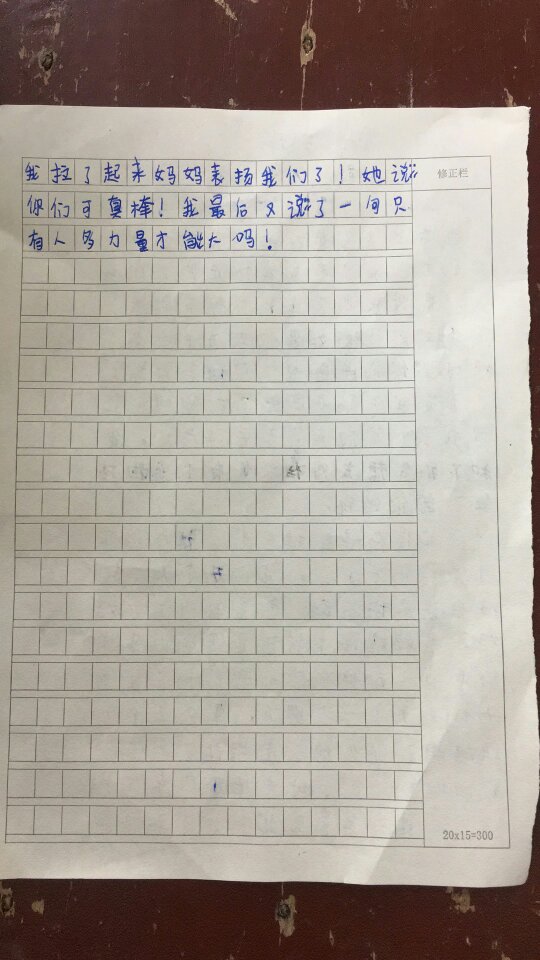 我拉了起来妈妈表扬我们了！她说
修正栏
你们可真棒！我最后又说了一句只
有人多力量才能大吗！
20x15=300